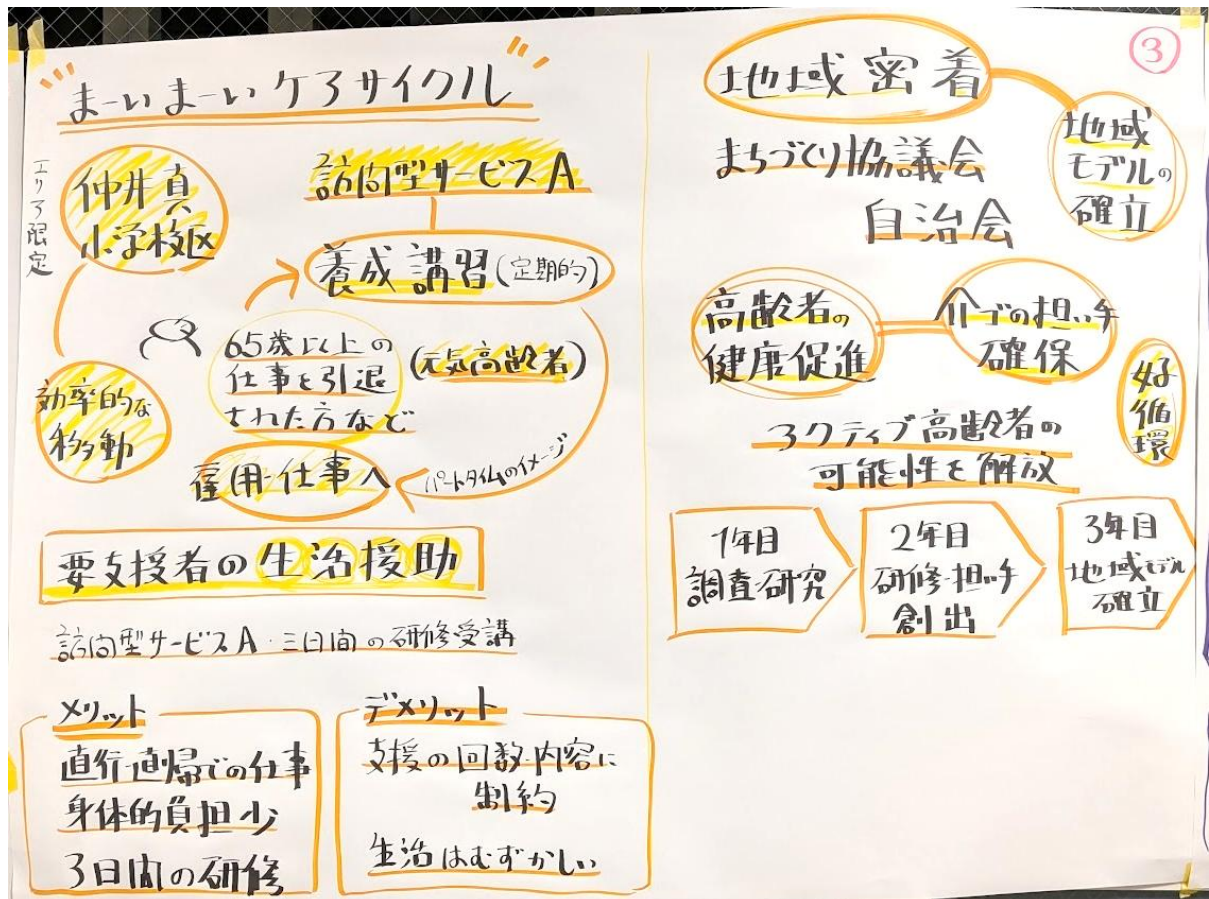 まーいまーいケアサイクル
エリア限定
仲井真
小学校区
効率的な
移動
訪問型サービスA
養成講習(定期的)
65歳以上の
仕事を引退
された方など
(元気高齢者)
雇用・仕事へ
パートタイムのイメージ
要支援者の生活援助
訪問型サービスA・三日間の研修受講
メリット
直行・直帰での仕事
身体的負担少
3日間の研修
デメリット
支援の回数・内容に
制約
生活はむずかしい
③
地域密着
まちづくり協議会
自治会
地域
モデルの
確立
高齢者の
健康促進
介ゴの担い手
確保
好循環
アクティブ高齢者の
可能性を解放
1年目
調査・研究
2年目
研修・担い手
創出
3年目
地域モデル
確立